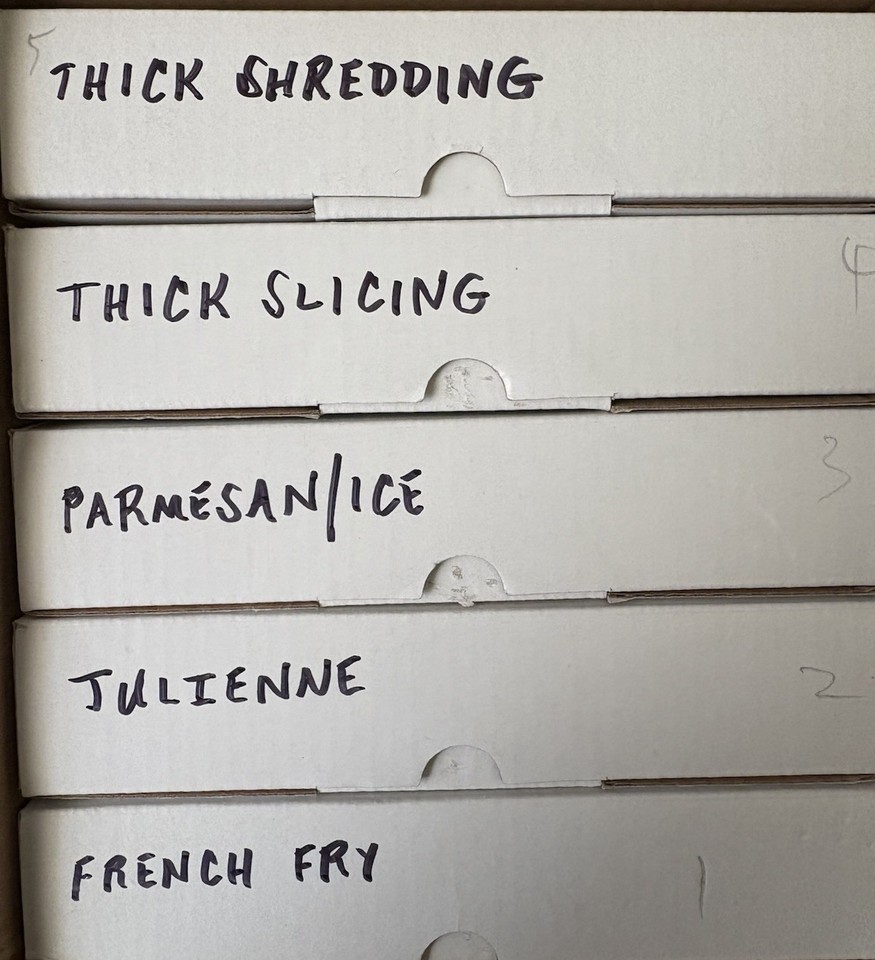 5
THICK SHREDDING
THICK SLICING
4
PARMESAN/ICE
3
JULIENNE
2
FRENCH FRY
1